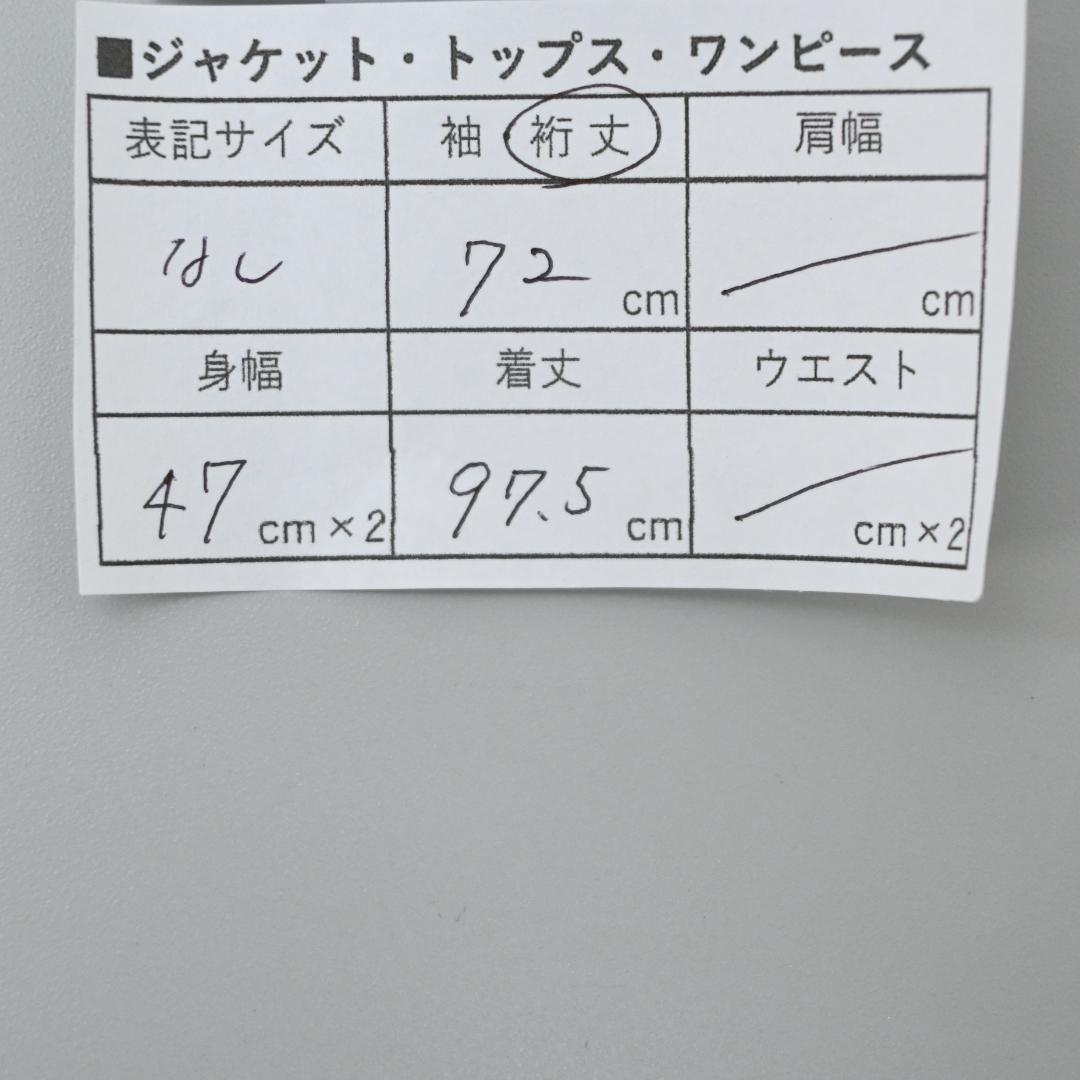 ■ジャケット・トップス・ワンピース
表記サイズ 袖 裄丈 肩幅
なし 72 cm cm
身幅 着丈 ウエスト
47 cm×2 97.5 cm cm×2